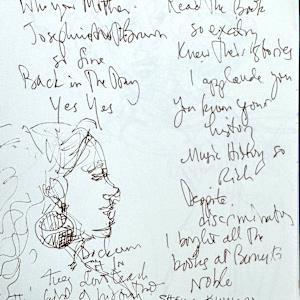 Who your Mother.
Josephine
so fine
Back in The Day
Yes Yes
Read The Book
so exciting
Knew Their stories
I applaude you
You know your
history
Music History so
Rich
Despite
discrimination
I bought all the
books at Barnes &
Noble
They dont teach